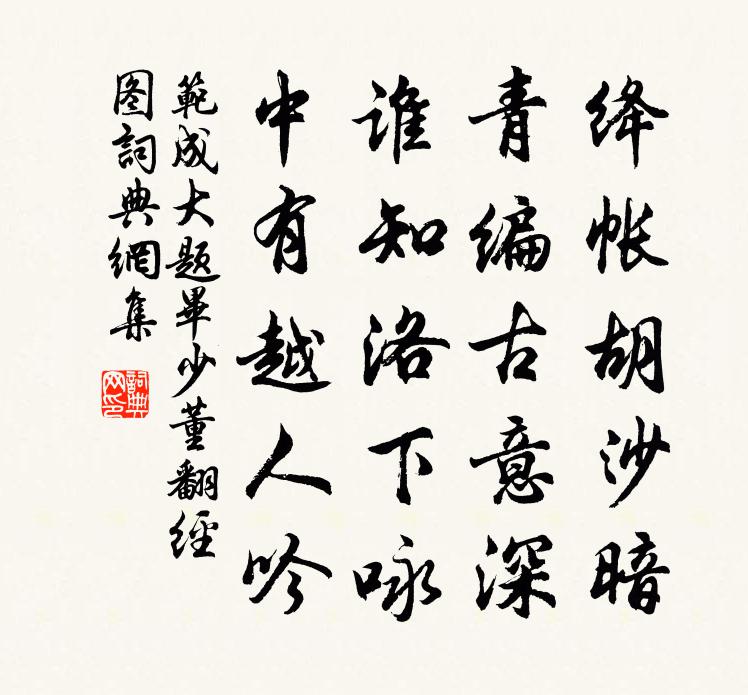 绛帐胡沙暗
青编古意深
谁知洛下咏
中有越人吟
範成大题畢少董翻經
图詞典網集
詞典网印